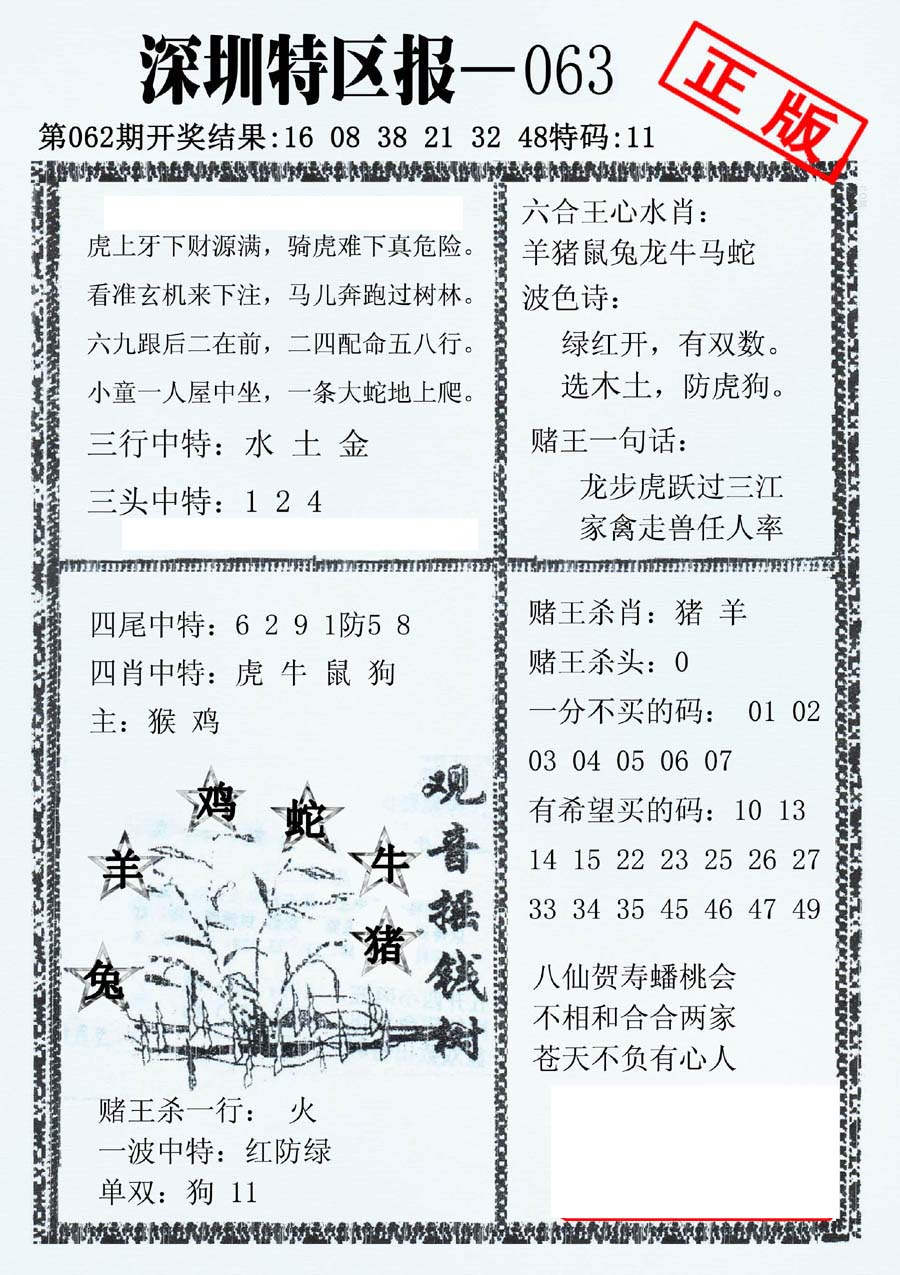 深圳特区报—063
正版
第062期开奖结果:16 08 38 21 32 48特码:11
虎上牙下财源满，骑虎难下真危险。
看准玄机来下注，马儿奔跑过树林。
六九跟后二在前，二四配命五八行。
小童一人屋中坐，一条大蛇地上爬。
三行中特：水 土 金
三头中特：1 2 4
六合王心水肖：
羊猪鼠兔龙牛马蛇
波色诗：
绿红开，有双数。
选木土，防虎狗。
赌王一句话：
龙步虎跃过三江
家禽走兽任人率
四尾中特：6 2 9 1防5 8
四肖中特：虎 牛 鼠 狗
主：猴 鸡
鸡
蛇
羊
牛
猪
兔
观音摇钱树
赌王杀一行： 火
一波中特：红防绿
单双：狗 11
赌王杀肖：猪 羊
赌王杀头：0
一分不买的码： 01 02
03 04 05 06 07
有希望买的码：10 13
14 15 22 23 25 26 27
33 34 35 45 46 47 49
八仙贺寿蟠桃会
不相和合合两家
苍天不负有心人